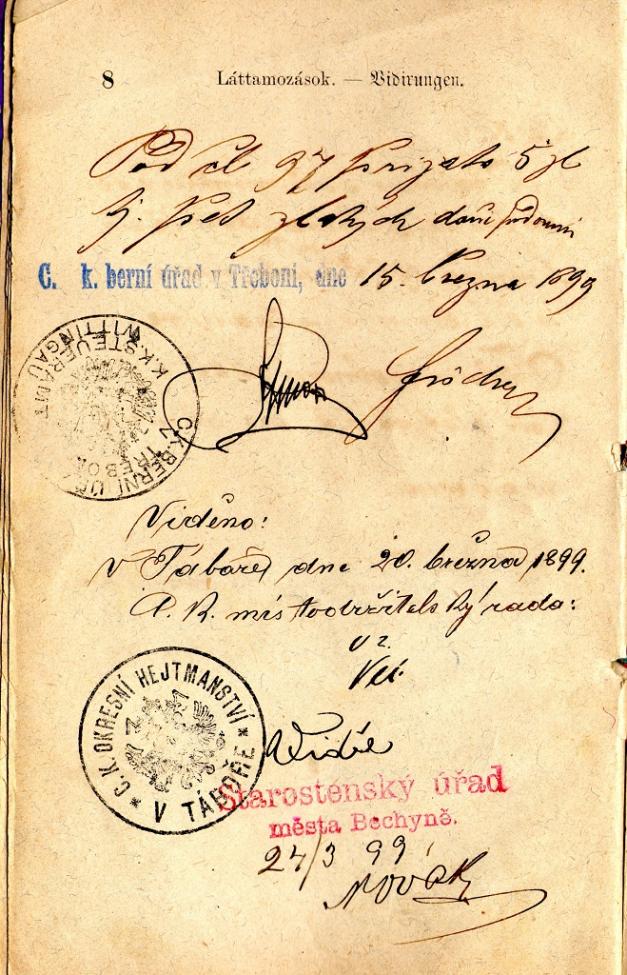 8 Láttamozások. — Vidirungen.
Pod čl 97 přijato 5 zl
tj. pět zlatých daně podomní
C. k. berní úřad v Třeboni, dne 15. března 1899
K.K. STEUERAMT WITTINGAU
C.K. BERNÍ ÚŘ TŘEBOŇ
Viděno:
v Táboře, dne 20. března 1899.
C. K. místodržitelský rada:
C.K. OKRESNÍ HEJTMANSTVÍ V TÁBOŘE
Vidi
Starostenský úřad
města Bechyně.
24/3 99
Novák